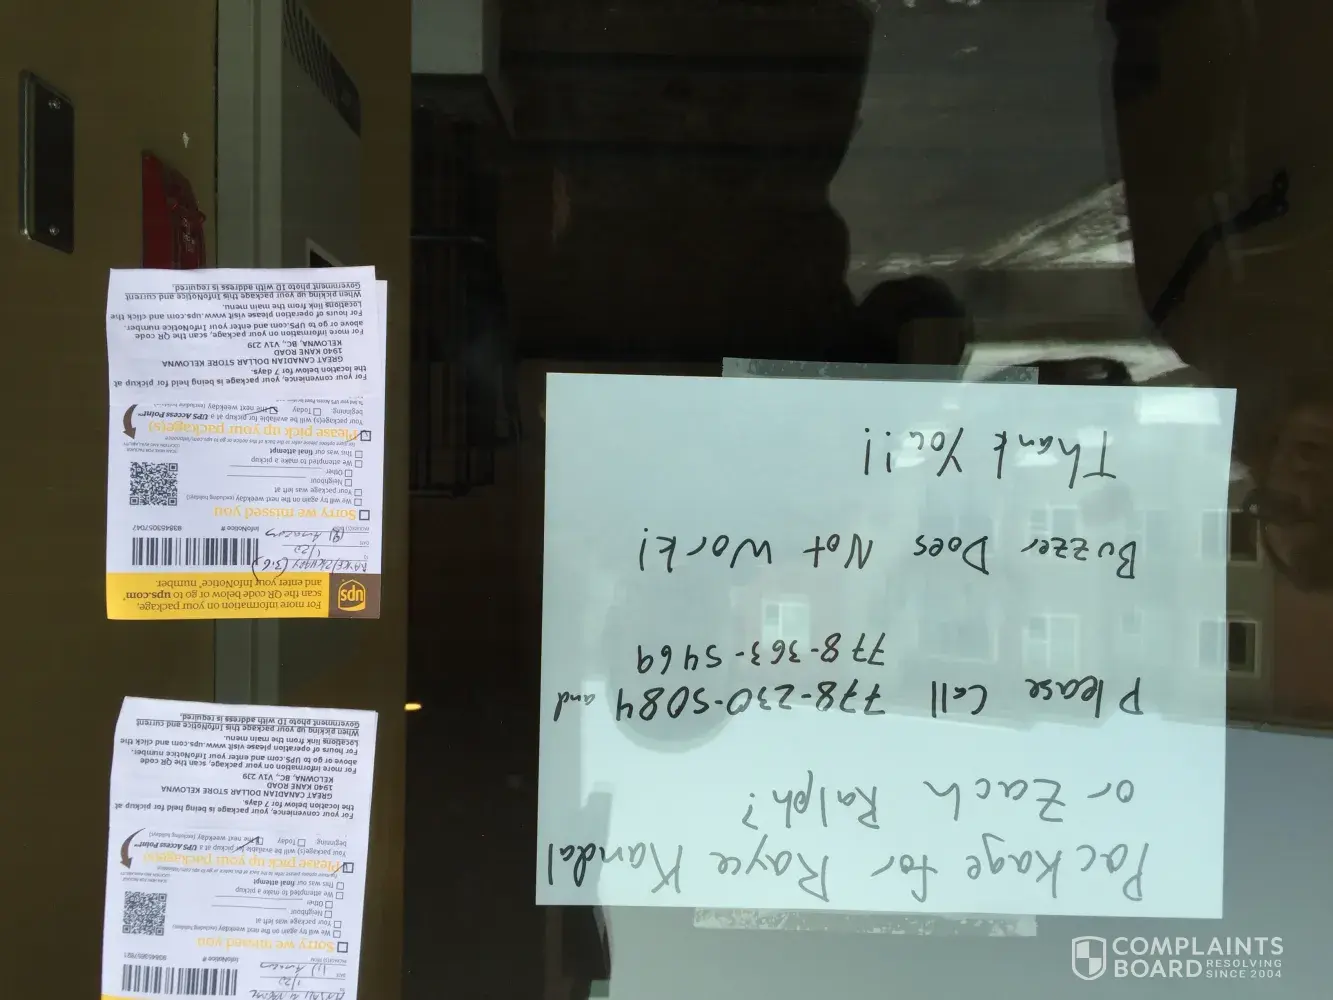 Package for Rayce Kandal
or Zach Ralph?
Please Call 778-230-5084 and
778-363-5469
Buzzer Does Not Work!
Thank You!!
For more information on your package,
scan the QR code below or go to ups.com®
and enter your InfoNotice® number.
ups
1/22
(1) Amazon
InfoNotice #
Sorry we missed you
We will try again on the next weekday (excluding holidays)
Your package was left at
Neighbour
Other
We attempted to make a pickup
This was our final attempt
Please pick up your package(s)
Your package(s) will be available for pickup at a UPS Access Point™
beginning: Today the next weekday
For your convenience, your package is being held for pickup at
the location below for 7 days.
GREAT CANADIAN DOLLAR STORE KELOWNA
1940 KANE ROAD
KELOWNA, BC, V1V 2J9
For more information on your package, scan the QR code
above or go to UPS.com and enter your InfoNotice number.
For hours of operation please visit www.ups.com and click the
Locations link from the main menu.
When picking up your package this InfoNotice and current
Government photo ID with address is required.
1/22
(1) Amazon
InfoNotice #
Sorry we missed you
We will try again on the next weekday (excluding holidays)
Your package was left at
Neighbour
Other
We attempted to make a pickup
This was our final attempt
Please pick up your package(s)
Your package(s) will be available for pickup at a UPS Access Point™
beginning: Today the next weekday (excluding holidays)
For your convenience, your package is being held for pickup at
the location below for 7 days.
GREAT CANADIAN DOLLAR STORE KELOWNA
1940 KANE ROAD
KELOWNA, BC, V1V 2J9
For more information on your package, scan the QR code
above or go to UPS.com and enter your InfoNotice number.
For hours of operation please visit www.ups.com and click the
Locations link from the main menu.
When picking up your package this InfoNotice and current
Government photo ID with address is required.
COMPLAINTS
BOARD RESOLVING
SINCE 2004